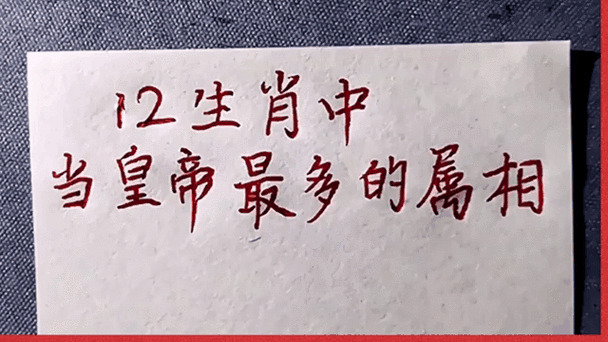 12生肖中
当皇帝最多的属相